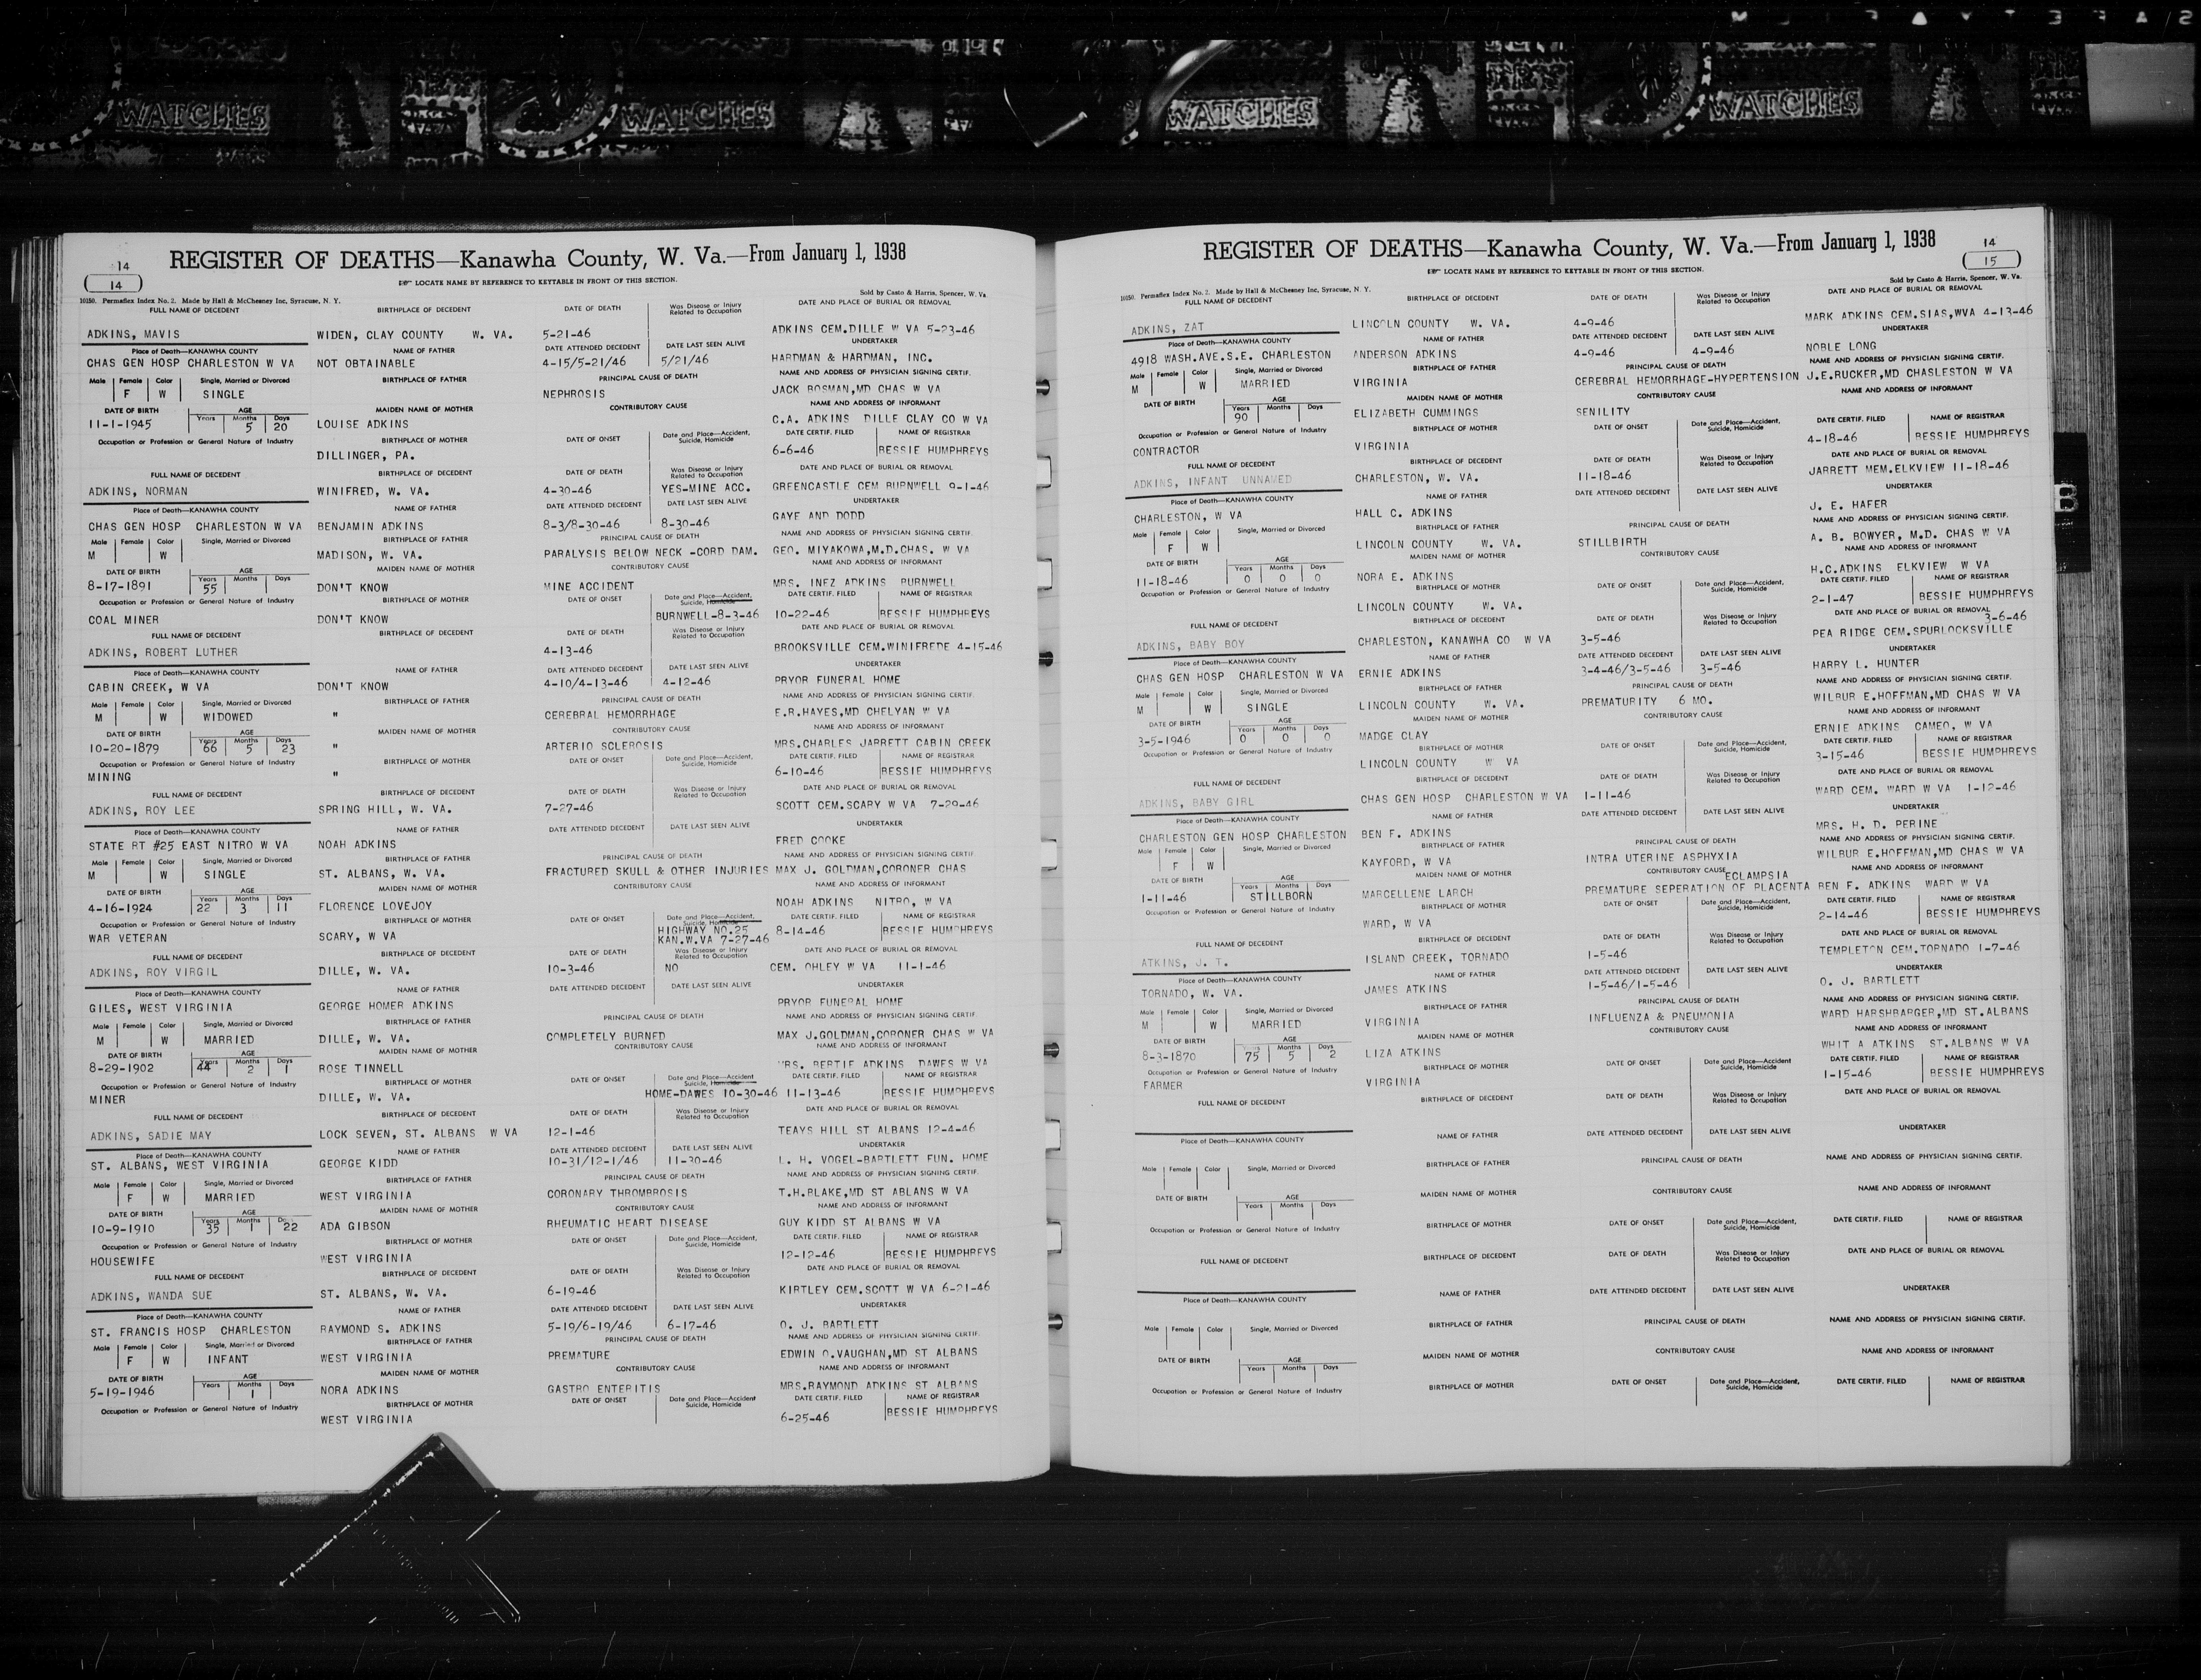 WATCHES WATCHES WATCHES WATCHES
14
14
REGISTER OF DEATHS—Kanawha County, W. Va.—From January 1, 1938
LOCATE NAME BY REFERENCE TO KEYTABLE IN FRONT OF THIS SECTION.
Sold by Casto & Harris, Spencer, W. Va.
10150. Permaflex Index No. 2. Made by Hall & McChesney Inc, Syracuse, N. Y.
FULL NAME OF DECEDENT BIRTHPLACE OF DECEDENT DATE OF DEATH Was Disease or Injury Related to Occupation DATE AND PLACE OF BURIAL OR REMOVAL
ADKINS, MAVIS WIDEN, CLAY COUNTY W. VA. 5-21-46 ADKINS CEM.DILLE W VA 5-23-46
Place of Death—KANAWHA COUNTY NAME OF FATHER DATE ATTENDED DECEDENT DATE LAST SEEN ALIVE UNDERTAKER
CHAS GEN HOSP CHARLESTON W VA NOT OBTAINABLE 4-15/5-21/46 5/21/46 HARDMAN & HARDMAN, INC.
Male Female Color Single, Married or Divorced BIRTHPLACE OF FATHER PRINCIPAL CAUSE OF DEATH NAME AND ADDRESS OF PHYSICIAN SIGNING CERTIF.
F W SINGLE NEPHROSIS JACK BOSMAN,MD CHAS W VA
DATE OF BIRTH AGE Years Months Days MAIDEN NAME OF MOTHER CONTRIBUTORY CAUSE NAME AND ADDRESS OF INFORMANT
11-1-1945 5 20 LOUISE ADKINS C.A. ADKINS DILLE CLAY CO W VA
Occupation or Profession or General Nature of Industry BIRTHPLACE OF MOTHER DATE OF ONSET Date and Place—Accident, Suicide, Homicide DATE CERTIF. FILED NAME OF REGISTRAR
DILLINGER, PA. 6-6-46 BESSIE HUMPHREYS
FULL NAME OF DECEDENT BIRTHPLACE OF DECEDENT DATE OF DEATH Was Disease or Injury Related to Occupation DATE AND PLACE OF BURIAL OR REMOVAL
ADKINS, NORMAN WINIFRED, W. VA. 4-30-46 YES-MINE ACC. GREENCASTLE CEM BURNWELL 9-1-46
Place of Death—KANAWHA COUNTY NAME OF FATHER DATE ATTENDED DECEDENT DATE LAST SEEN ALIVE UNDERTAKER
CHAS GEN HOSP CHARLESTON W VA BENJAMIN ADKINS 8-3/8-30-46 8-30-46 GAYE AND DODD
Male Female Color Single, Married or Divorced BIRTHPLACE OF FATHER PRINCIPAL CAUSE OF DEATH NAME AND ADDRESS OF PHYSICIAN SIGNING CERTIF.
M W MADISON, W. VA. PARALYSIS BELOW NECK -CORD DAM. GEO. MIYAKOWA,M.D.CHAS. W VA
DATE OF BIRTH AGE Years Months Days MAIDEN NAME OF MOTHER CONTRIBUTORY CAUSE NAME AND ADDRESS OF INFORMANT
8-17-1891 55 DON'T KNOW MINE ACCIDENT MRS. INEZ ADKINS BURNWELL
Occupation or Profession or General Nature of Industry BIRTHPLACE OF MOTHER DATE OF ONSET Date and Place—Accident, Suicide, Homicide DATE CERTIF. FILED NAME OF REGISTRAR
COAL MINER DON'T KNOW BURNWELL-8-3-46 10-22-46 BESSIE HUMPHREYS
FULL NAME OF DECEDENT BIRTHPLACE OF DECEDENT DATE OF DEATH Was Disease or Injury Related to Occupation DATE AND PLACE OF BURIAL OR REMOVAL
ADKINS, ROBERT LUTHER 4-13-46 BROOKSVILLE CEM.WINIFREDE 4-15-46
Place of Death—KANAWHA COUNTY NAME OF FATHER DATE ATTENDED DECEDENT DATE LAST SEEN ALIVE UNDERTAKER
CABIN CREEK, W VA DON'T KNOW 4-10/4-13-46 4-12-46 PRYOR FUNERAL HOME
Male Female Color Single, Married or Divorced BIRTHPLACE OF FATHER PRINCIPAL CAUSE OF DEATH NAME AND ADDRESS OF PHYSICIAN SIGNING CERTIF.
M W WIDOWED " CEREBRAL HEMORRHAGE E.R.HAYES,MD CHELYAN W VA
DATE OF BIRTH AGE Years Months Days MAIDEN NAME OF MOTHER CONTRIBUTORY CAUSE NAME AND ADDRESS OF INFORMANT
10-20-1879 66 5 23 " ARTERIO SCLEROSIS MRS.CHARLES JARRETT CABIN CREEK
Occupation or Profession or General Nature of Industry BIRTHPLACE OF MOTHER DATE OF ONSET Date and Place—Accident, Suicide, Homicide DATE CERTIF. FILED NAME OF REGISTRAR
MINING " 6-10-46 BESSIE HUMPHREYS
FULL NAME OF DECEDENT BIRTHPLACE OF DECEDENT DATE OF DEATH Was Disease or Injury Related to Occupation DATE AND PLACE OF BURIAL OR REMOVAL
ADKINS, ROY LEE SPRING HILL, W. VA. 7-27-46 SCOTT CEM.SCARY W VA 7-29-46
Place of Death—KANAWHA COUNTY NAME OF FATHER DATE ATTENDED DECEDENT DATE LAST SEEN ALIVE UNDERTAKER
STATE RT #25 EAST NITRO W VA NOAH ADKINS FRED COOKE
Male Female Color Single, Married or Divorced BIRTHPLACE OF FATHER PRINCIPAL CAUSE OF DEATH NAME AND ADDRESS OF PHYSICIAN SIGNING CERTIF.
M W SINGLE ST. ALBANS, W. VA. FRACTURED SKULL & OTHER INJURIES MAX J. GOLDMAN,CORONER CHAS
DATE OF BIRTH AGE Years Months Days MAIDEN NAME OF MOTHER CONTRIBUTORY CAUSE NAME AND ADDRESS OF INFORMANT
4-16-1924 22 3 11 FLORENCE LOVEJOY NOAH ADKINS NITRO, W VA
Occupation or Profession or General Nature of Industry BIRTHPLACE OF MOTHER DATE OF ONSET Date and Place—Accident, Suicide, Homicide DATE CERTIF. FILED NAME OF REGISTRAR
WAR VETERAN SCARY, W VA HIGHWAY NO.25 KAN.W.VA 7-27-46 8-14-46 BESSIE HUMPHREYS
FULL NAME OF DECEDENT BIRTHPLACE OF DECEDENT DATE OF DEATH Was Disease or Injury Related to Occupation DATE AND PLACE OF BURIAL OR REMOVAL
ADKINS, ROY VIRGIL DILLE, W. VA. 10-3-46 NO CEM. OHLEY W VA 11-1-46
Place of Death—KANAWHA COUNTY NAME OF FATHER DATE ATTENDED DECEDENT DATE LAST SEEN ALIVE UNDERTAKER
GILES, WEST VIRGINIA GEORGE HOMER ADKINS PRYOR FUNERAL HOME
Male Female Color Single, Married or Divorced BIRTHPLACE OF FATHER PRINCIPAL CAUSE OF DEATH NAME AND ADDRESS OF PHYSICIAN SIGNING CERTIF.
M W MARRIED DILLE, W. VA. COMPLETELY BURNED MAX J.GOLDMAN,CORONER CHAS W VA
DATE OF BIRTH AGE Years Months Days MAIDEN NAME OF MOTHER CONTRIBUTORY CAUSE NAME AND ADDRESS OF INFORMANT
8-29-1902 44 2 1 ROSE TINNELL MRS. BERTIE ADKINS DAWES W VA
Occupation or Profession or General Nature of Industry BIRTHPLACE OF MOTHER DATE OF ONSET Date and Place—Accident Suicide, Homicide DATE CERTIF. FILED NAME OF REGISTRAR
MINER DILLE, W. VA. HOME-DAWES 10-30-46 11-13-46 BESSIE HUMPHREYS
FULL NAME OF DECEDENT BIRTHPLACE OF DECEDENT DATE OF DEATH Was Disease or Injury Related to Occupation DATE AND PLACE OF BURIAL OR REMOVAL
ADKINS, SADIE MAY LOCK SEVEN, ST. ALBANS W VA 12-1-46 TEAYS HILL ST ALBANS 12-4-46
Place of Death—KANAWHA COUNTY NAME OF FATHER DATE ATTENDED DECEDENT DATE LAST SEEN ALIVE UNDERTAKER
ST. ALBANS, WEST VIRGINIA GEORGE KIDD 10-31/12-1/46 11-30-46 L. H. VOGEL-BARTLETT FUN. HOME
Male Female Color Single, Married or Divorced BIRTHPLACE OF FATHER PRINCIPAL CAUSE OF DEATH NAME AND ADDRESS OF PHYSICIAN SIGNING CERTIF.
F W MARRIED WEST VIRGINIA CORONARY THROMBROSIS T.H.BLAKE,MD ST ABLANS W VA
DATE OF BIRTH AGE Years Months Days MAIDEN NAME OF MOTHER CONTRIBUTORY CAUSE NAME AND ADDRESS OF INFORMANT
10-9-1910 35 1 22 ADA GIBSON RHEUMATIC HEART DISEASE GUY KIDD ST ALBANS W VA
Occupation or Profession or General Nature of Industry BIRTHPLACE OF MOTHER DATE OF ONSET Date and Place—Accident, Suicide, Homicide DATE CERTIF. FILED NAME OF REGISTRAR
HOUSEWIFE WEST VIRGINIA 12-12-46 BESSIE HUMPHREYS
FULL NAME OF DECEDENT BIRTHPLACE OF DECEDENT DATE OF DEATH Was Disease or Injury Related to Occupation DATE AND PLACE OF BURIAL OR REMOVAL
ADKINS, WANDA SUE ST. ALBANS, W. VA. 6-19-46 KIRTLEY CEM.SCOTT W VA 6-21-46
Place of Death—KANAWHA COUNTY NAME OF FATHER DATE ATTENDED DECEDENT DATE LAST SEEN ALIVE UNDERTAKER
ST. FRANCIS HOSP CHARLESTON RAYMOND S. ADKINS 5-19/6-19/46 6-17-46 O. J. BARTLETT
Male Female Color Single, Married or Divorced BIRTHPLACE OF FATHER PRINCIPAL CAUSE OF DEATH NAME AND ADDRESS OF PHYSICIAN SIGNING CERTIF.
F W INFANT WEST VIRGINIA PREMATURE EDWIN O.VAUGHAN,MD ST ALBANS
DATE OF BIRTH AGE Years Months Days MAIDEN NAME OF MOTHER CONTRIBUTORY CAUSE NAME AND ADDRESS OF INFORMANT
5-19-1946 1 NORA ADKINS GASTRO ENTERITIS MRS.RAYMOND ADKINS ST ALBANS
Occupation or Profession or General Nature of Industry BIRTHPLACE OF MOTHER DATE OF ONSET Date and Place—Accident Suicide, Homicide DATE CERTIF. FILED NAME OF REGISTRAR
WEST VIRGINIA 6-25-46 BESSIE HUMPHREYS
14
15
REGISTER OF DEATHS—Kanawha County, W. Va.—From January 1, 1938
LOCATE NAME BY REFERENCE TO KEYTABLE IN FRONT OF THIS SECTION.
Sold by Casto & Harris, Spencer, W. Va.
10150. Permaflex Index No. 2. Made by Hall & McChesney Inc, Syracuse, N. Y.
FULL NAME OF DECEDENT BIRTHPLACE OF DECEDENT DATE OF DEATH Was Disease or Injury Related to Occupation DATE AND PLACE OF BURIAL OR REMOVAL
ADKINS, ZAT LINCOLN COUNTY W. VA. 4-9-46 MARK ADKINS CEM.SIAS,WVA 4-13-46
Place of Death—KANAWHA COUNTY NAME OF FATHER DATE ATTENDED DECEDENT DATE LAST SEEN ALIVE UNDERTAKER
4918 WASH.AVE.S.E. CHARLESTON ANDERSON ADKINS 4-9-46 4-9-46 NOBLE LONG
Male Female Color Single, Married or Divorced BIRTHPLACE OF FATHER PRINCIPAL CAUSE OF DEATH NAME AND ADDRESS OF PHYSICIAN SIGNING CERTIF.
M W MARRIED VIRGINIA CEREBRAL HEMORRHAGE-HYPERTENSION J.E.RUCKER,MD CHASLESTON W VA
DATE OF BIRTH AGE Years Months Days MAIDEN NAME OF MOTHER CONTRIBUTORY CAUSE NAME AND ADDRESS OF INFORMANT
90 ELIZABETH CUMMINGS SENILITY
Occupation or Profession or General Nature of Industry BIRTHPLACE OF MOTHER DATE OF ONSET Date and Place—Accident, Suicide, Homicide DATE CERTIF. FILED NAME OF REGISTRAR
CONTRACTOR VIRGINIA 4-18-46 BESSIE HUMPHREYS
FULL NAME OF DECEDENT BIRTHPLACE OF DECEDENT DATE OF DEATH Was Disease or Injury Related to Occupation DATE AND PLACE OF BURIAL OR REMOVAL
ADKINS, INFANT UNNAMED CHARLESTON, W. VA. 11-18-46 JARRETT MEM.ELKVIEW 11-18-46
Place of Death—KANAWHA COUNTY NAME OF FATHER DATE ATTENDED DECEDENT DATE LAST SEEN ALIVE UNDERTAKER
CHARLESTON, W VA HALL C. ADKINS J. E. HAFER
Male Female Color Single, Married or Divorced BIRTHPLACE OF FATHER PRINCIPAL CAUSE OF DEATH NAME AND ADDRESS OF PHYSICIAN SIGNING CERTIF.
F W LINCOLN COUNTY W. VA. STILLBIRTH A. B. BOWYER, M.D. CHAS W VA
DATE OF BIRTH AGE Years Months Days MAIDEN NAME OF MOTHER CONTRIBUTORY CAUSE NAME AND ADDRESS OF INFORMANT
11-18-46 0 0 0 NORA E. ADKINS H.C.ADKINS ELKVIEW W VA
Occupation or Profession or General Nature of Industry BIRTHPLACE OF MOTHER DATE OF ONSET Date and Place—Accident, Suicide, Homicide DATE CERTIF. FILED NAME OF REGISTRAR
LINCOLN COUNTY W. VA. 2-1-47 BESSIE HUMPHREYS
FULL NAME OF DECEDENT BIRTHPLACE OF DECEDENT DATE OF DEATH Was Disease or Injury Related to Occupation DATE AND PLACE OF BURIAL OR REMOVAL
ADKINS, BABY BOY CHARLESTON, KANAWHA CO W VA 3-5-46 3-6-46 PEA RIDGE CEM.SPURLOCKSVILLE
Place of Death—KANAWHA COUNTY NAME OF FATHER DATE ATTENDED DECEDENT DATE LAST SEEN ALIVE UNDERTAKER
CHAS GEN HOSP CHARLESTON W VA ERNIE ADKINS 3-4-46/3-5-46 3-5-46 HARRY L. HUNTER
Male Female Color Single, Married or Divorced BIRTHPLACE OF FATHER PRINCIPAL CAUSE OF DEATH NAME AND ADDRESS OF PHYSICIAN SIGNING CERTIF.
M W SINGLE LINCOLN COUNTY W. VA. PREMATURITY 6 MO. WILBUR E.HOFFMAN,MD CHAS W VA
DATE OF BIRTH AGE Years Months Days MAIDEN NAME OF MOTHER CONTRIBUTORY CAUSE NAME AND ADDRESS OF INFORMANT
3-5-1946 0 0 0 MADGE CLAY ERNIE ADKINS CAMEO, W VA
Occupation or Profession or General Nature of Industry BIRTHPLACE OF MOTHER DATE OF ONSET Date and Place—Accident, Suicide, Homicide DATE CERTIF. FILED NAME OF REGISTRAR
LINCOLN COUNTY W VA 3-15-46 BESSIE HUMPHREYS
FULL NAME OF DECEDENT BIRTHPLACE OF DECEDENT DATE OF DEATH Was Disease or Injury Related to Occupation DATE AND PLACE OF BURIAL OR REMOVAL
ADKINS, BABY GIRL CHAS GEN HOSP CHARLESTON W VA 1-11-46 WARD CEM. WARD W VA 1-12-46
Place of Death—KANAWHA COUNTY NAME OF FATHER DATE ATTENDED DECEDENT DATE LAST SEEN ALIVE UNDERTAKER
CHARLESTON GEN HOSP CHARLESTON BEN F. ADKINS MRS. H. D. PERINE
Male Female Color Single, Married or Divorced BIRTHPLACE OF FATHER PRINCIPAL CAUSE OF DEATH NAME AND ADDRESS OF PHYSICIAN SIGNING CERTIF.
F W KAYFORD, W VA INTRA UTERINE ASPHYXIA WILBUR E.HOFFMAN,MD CHAS W VA
DATE OF BIRTH AGE Years Months Days MAIDEN NAME OF MOTHER CONTRIBUTORY CAUSE NAME AND ADDRESS OF INFORMANT
1-11-46 STILLBORN MARCELLENE LARCH ECLAMPSIA PREMATURE SEPERATION OF PLACENTA BEN F. ADKINS WARD W VA
Occupation or Profession or General Nature of Industry BIRTHPLACE OF MOTHER DATE OF ONSET Date and Place—Accident, Suicide, Homicide DATE CERTIF. FILED NAME OF REGISTRAR
WARD, W VA 2-14-46 BESSIE HUMPHREYS
FULL NAME OF DECEDENT BIRTHPLACE OF DECEDENT DATE OF DEATH Was Disease or Injury Related to Occupation DATE AND PLACE OF BURIAL OR REMOVAL
ATKINS, J. T. ISLAND CREEK, TORNADO 1-5-46 TEMPLETON CEM.TORNADO 1-7-46
Place of Death—KANAWHA COUNTY NAME OF FATHER DATE ATTENDED DECEDENT DATE LAST SEEN ALIVE UNDERTAKER
TORNADO, W. VA. JAMES ATKINS 1-5-46/1-5-46 O. J. BARTLETT
Male Female Color Single, Married or Divorced BIRTHPLACE OF FATHER PRINCIPAL CAUSE OF DEATH NAME AND ADDRESS OF PHYSICIAN SIGNING CERTIF.
M W MARRIED VIRGINIA INFLUENZA & PNEUMONIA WARD HARSHBARGER,MD ST.ALBANS
DATE OF BIRTH AGE Years Months Days MAIDEN NAME OF MOTHER CONTRIBUTORY CAUSE NAME AND ADDRESS OF INFORMANT
8-3-1870 75 5 2 LIZA ATKINS WHIT A ATKINS ST.ALBANS W VA
Occupation or Profession or General Nature of Industry BIRTHPLACE OF MOTHER DATE OF ONSET Date and Place—Accident Suicide, Homicide DATE CERTIF. FILED NAME OF REGISTRAR
FARMER VIRGINIA 1-15-46 BESSIE HUMPHREYS
FULL NAME OF DECEDENT BIRTHPLACE OF DECEDENT DATE OF DEATH Was Disease or Injury Related to Occupation DATE AND PLACE OF BURIAL OR REMOVAL
Place of Death—KANAWHA COUNTY NAME OF FATHER DATE ATTENDED DECEDENT DATE LAST SEEN ALIVE UNDERTAKER
Male Female Color Single, Married or Divorced BIRTHPLACE OF FATHER PRINCIPAL CAUSE OF DEATH NAME AND ADDRESS OF PHYSICIAN SIGNING CERTIF.
DATE OF BIRTH AGE Years Months Days MAIDEN NAME OF MOTHER CONTRIBUTORY CAUSE NAME AND ADDRESS OF INFORMANT
Occupation or Profession or General Nature of Industry BIRTHPLACE OF MOTHER DATE OF ONSET Date and Place—Accident, Suicide, Homicide DATE CERTIF. FILED NAME OF REGISTRAR
FULL NAME OF DECEDENT BIRTHPLACE OF DECEDENT DATE OF DEATH Was Disease or Injury Related to Occupation DATE AND PLACE OF BURIAL OR REMOVAL
Place of Death—KANAWHA COUNTY NAME OF FATHER DATE ATTENDED DECEDENT DATE LAST SEEN ALIVE UNDERTAKER
Male Female Color Single, Married or Divorced BIRTHPLACE OF FATHER PRINCIPAL CAUSE OF DEATH NAME AND ADDRESS OF PHYSICIAN SIGNING CERTIF.
DATE OF BIRTH AGE Years Months Days MAIDEN NAME OF MOTHER CONTRIBUTORY CAUSE NAME AND ADDRESS OF INFORMANT
Occupation or Profession or General Nature of Industry BIRTHPLACE OF MOTHER DATE OF ONSET Date and Place—Accident, Suicide, Homicide DATE CERTIF. FILED NAME OF REGISTRAR
B